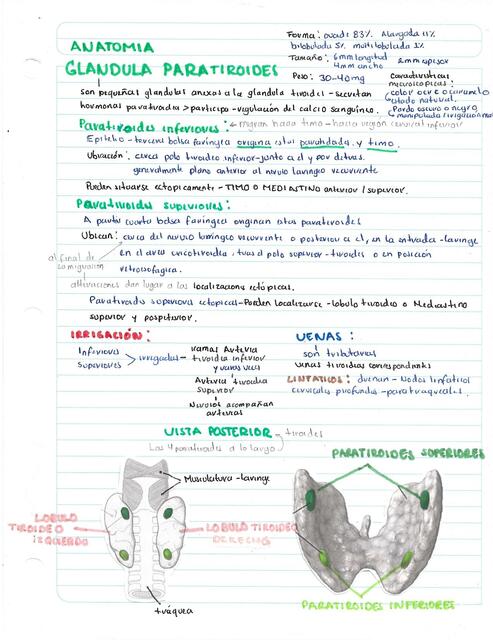 Forma: ovoide 83% Alargada 11%
bilobulada 5% multilobulada 1%
ANATOMIA
Tamaño: 6mm longitud
4mm ancho 2mm espesor
GLANDULA PARATIROIDES
Peso: 30-40mg
Caracteristicas
macroscopicas:
color ocre o caramelo
estado natural.
Pardo oscuro o negro
manipulada/irrigacion mal
son pequeñas glandulas anexas a la glandula tiroides - secretan
hormonas paratiroidea > participa - regulación del calcio sanguíneo.
Paratiroides inferiores: migran hacia timo - hacia region cervical inferior
Epitelio - tercera bolsa faríngea origina estas paratiroides y timo.
Ubicación: cerca polo tiroideo inferior - junto a el y por detras.
generalmente plano anterior al nervio laringeo recurrente
Pueden situarse ectopicamente - TIMO O MEDIASTINO anterior / superior.
Paratiroides superiores:
A partir cuarta bolsa faríngea originan otras paratiroides
Ubican: cerca del nervio laringeo recurrente o posterior a el, en la entrada - laringe
al final de
su migración
en el area cricotiroidea, tras el polo superior - tiroides o en posición
retroesofagica.
alteraciones dan lugar a las localizaciones ectópicas.
Paratiroides superiores ectopicas - Pueden localizarse - lobulo tiroideo o Mediastino
superior y posterior.
IRRIGACIÓN:
Inferiores
Superiores
irrigadas -
ramas Arteria
tiroidea inferior
y varas veces
Arteria tiroidea
superior
Nervios acompañan
arterias
VENAS:
son tributarias
venas tiroideas correspondientes
LINFATICOS: drenan - nodos linfaticos
cervicales profundos - paratraqueales.
VISTA POSTERIOR - tiroides
Las 4 paratiroides a lo largo
PARATIROIDES SUPERIORES
Musculatura - laringe
LOBULO
TIROIDEO
IZQUIERDO
LOBULO TIROIDEO
DERECHO
tráquea
PARATIROIDES INFERIORES